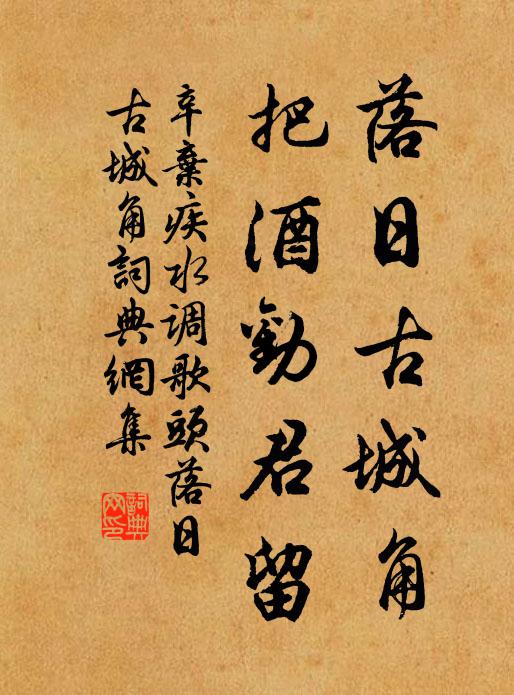 落日古城角
把酒勸君留
辛棄疾水调歌頭落日
古城角詞典網集
詞典
网印